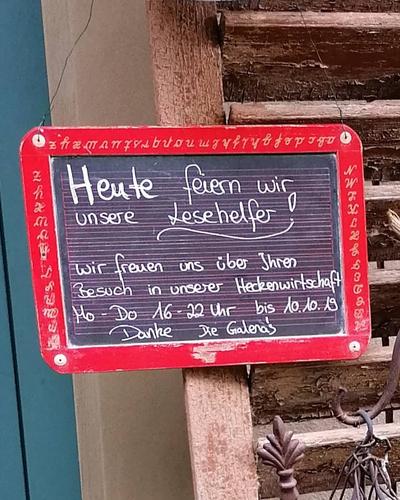 Heute feiern wir
unsere Lesehelfer!
Wir freuen uns über Ihren
Besuch in unserer Heckenwirtschaft
Mo - Do 16 - 22 Uhr bis 10.10.19
Danke Die Galena's